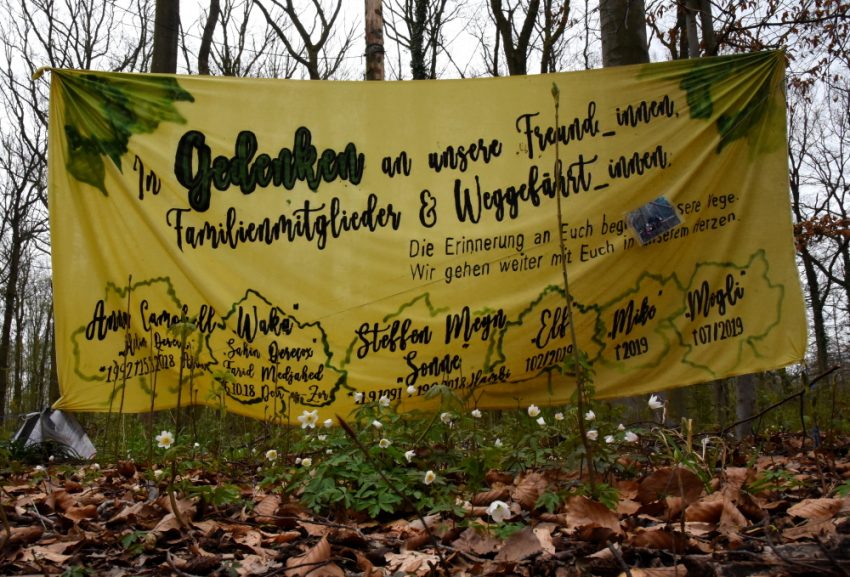 In Gedenken an unsere Freund_innen,
Familienmitglieder & Weggefährt_innen.
Die Erinnerung an Euch sere Wege.
Wir gehen weiter mit Euch in unserem Herzen.
Anna Campbell
15.3.2018 Afrin
"Waka"
"Şahin Qereçox"
Farid Medjahed
6.10.18 Deir ez Zor
Steffen Meyn
"Sonne"
*1.9.1991 - 19.9.2018 Hambi
"Elf"
†02/2019
"Miko"
†2019
"Mogli"
†07/2019